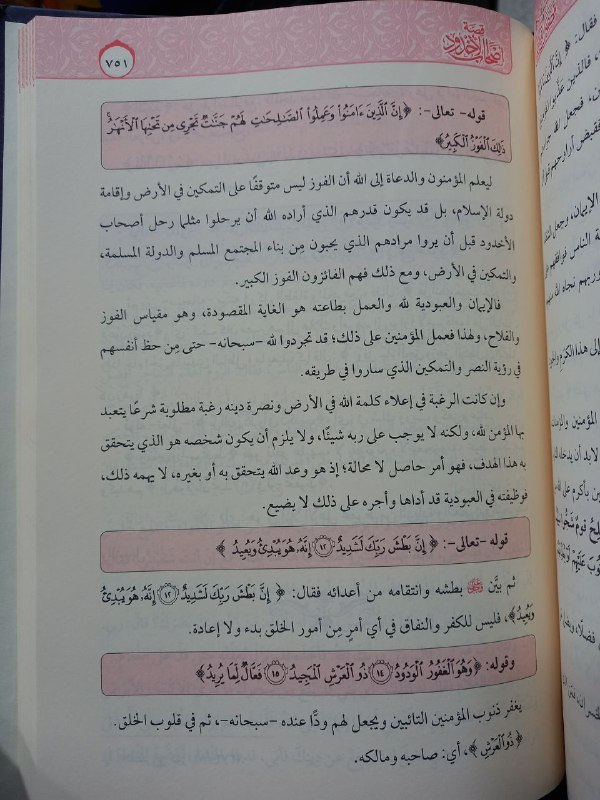 قصة
أصحاب الأخدود
٧٥١
قوله - تعالى -: ﴿إِنَّ ٱلَّذِينَ ءَامَنُوا۟ وَعَمِلُوا۟ ٱلصَّٰلِحَٰتِ لَهُمْ جَنَّٰتٌ تَجْرِى مِن تَحْتِهَا ٱلْأَنْهَٰرُ
ذَٰلِكَ ٱلْفَوْزُ ٱلْكَبِيرُ﴾
ليعلم المؤمنون والدعاة إلى الله أن الفوز ليس متوقفًا على التمكين في الأرض وإقامة
دولة الإسلام، بل قد يكون قدرهم الذي أراده الله أن يرحلوا مثلما رحل أصحاب
الأخدود قبل أن يروا مرادهم الذي يحبون مِن بناء المجتمع المسلم والدولة المسلمة،
والتمكين في الأرض، ومع ذلك فهم الفائزون الفوز الكبير.
فالإيمان والعبودية لله والعمل بطاعته هو الغاية المقصودة، وهو مقياس الفوز
والفلاح، ولهذا فعمل المؤمنين على ذلك؛ قد تجردوا لله -سبحانه- حتى مِن حظ أنفسهم
في رؤية النصر والتمكين الذي ساروا في طريقه.
وإن كانت الرغبة في إعلاء كلمة الله في الأرض ونصرة دينه رغبة مطلوبة شرعًا يتعبد
بها المؤمن لله، ولكنه لا يوجب على ربه شيئًا، ولا يلزم أن يكون شخصه هو الذي يتحقق
به هذا الهدف، فهو أمر حاصل لا محالة؛ إذ هو وعد الله يتحقق به أو بغيره، لا يهمه ذلك،
فوظيفته في العبودية قد أداها وأجره على ذلك لا يضيع.
قوله -تعالى-: ﴿إِنَّ بَطْشَ رَبِّكَ لَشَدِيدٌ ۝١٢ إِنَّهُۥ هُوَ يُبْدِئُ وَيُعِيدُ﴾
ثم بيَّن ﷻ بطشه وانتقامه من أعدائه فقال: ﴿إِنَّ بَطْشَ رَبِّكَ لَشَدِيدٌ ۝١٢ إِنَّهُۥ هُوَ يُبْدِئُ
وَيُعِيدُ﴾، فليس للكفر والنفاق في أي أمرٍ مِن أمور الخلق بدء ولا إعادة.
وقوله: ﴿وَهُوَ ٱلْغَفُورُ ٱلْوَدُودُ ۝١٤ ذُو ٱلْعَرْشِ ٱلْمَجِيدُ ۝١٥ فَعَّالٌ لِّمَا يُرِيدُ﴾
يغفر ذنوب المؤمنين التائبين ويجعل لهم ودًّا عنده -سبحانه-، ثم في قلوب الخلق.
﴿ذُو ٱلْعَرْشِ﴾، أي: صاحبه ومالكه.